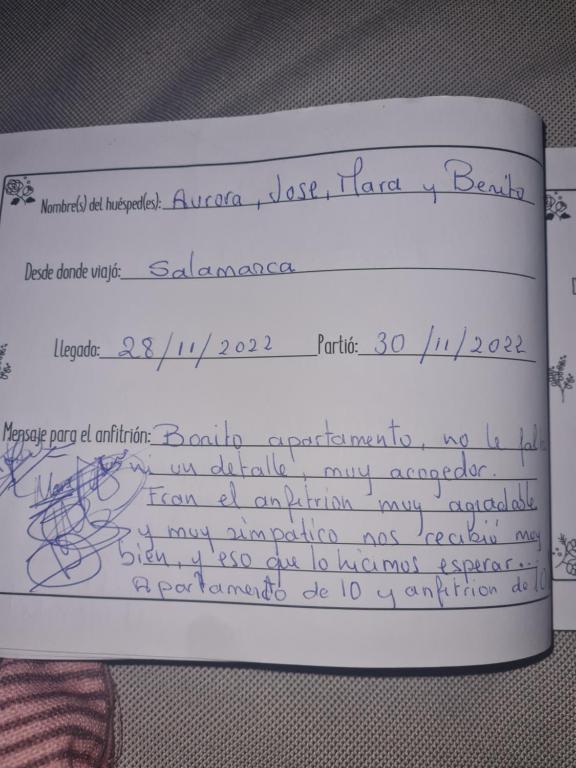 Nombre(s) del huésped(es): Aurora, Jose, Mara y Benito
Desde donde viajó: Salamanca
Llegado: 28/11/2022 Partió: 30/11/2022
Mensaje para el anfitrión: Bonito apartamento, no le
ni un detalle, muy acogedor.
Fran el anfitrion muy agradable
y muy simpatico nos recibió muy
bien, y eso que lo hicimos esperar...
Apartamento de 10 y anfitrion de 10